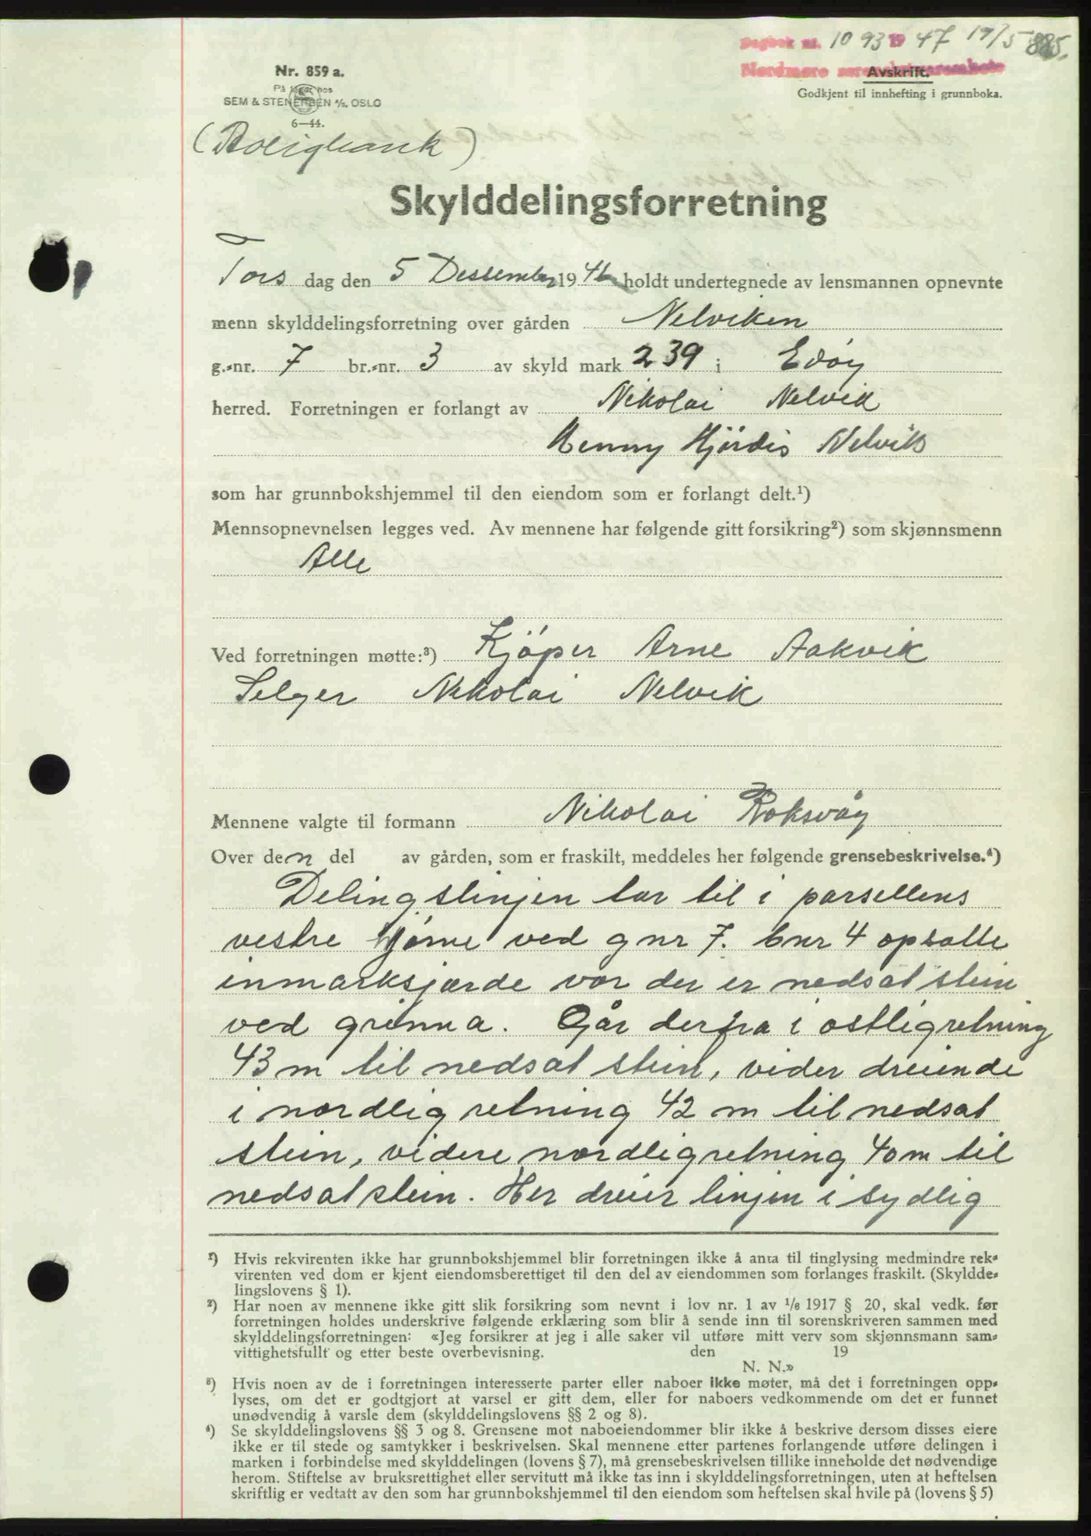 Dagbok nr. 1093 1947 19/5 885.
Nordmøre sorenskriverembete
Avskrift.
Godkjent til innhefting i grunnboka.
Nr. 859 a.
På lager hos
SEM & STENERSEN A/S, OSLO
6—44.
(Boligbank)
Skylddelingsforretning
Tors dag den 5 Dessember 1946 holdt undertegnede av lensmannen opnevnte
menn skylddelingsforretning over gården Nelviken
g.-nr. 7 br.-nr. 3 av skyld mark 2 39 i Edöy
herred. Forretningen er forlangt av Nikolai Nelvik
Henny Hjördis Nelvik
som har grunnbokshjemmel til den eiendom som er forlangt delt.¹)
Mennsopnevnelsen legges ved. Av mennene har følgende gitt forsikring²) som skjønnsmenn
Alle
Ved forretningen møtte:³) Kjöper Arne Aakvik
Selger Nikolai Nelvik
Mennene valgte til formann Nikolai Roksvåg
Over den del av gården, som er fraskilt, meddeles her følgende grensebeskrivelse.⁴)
Delingslinjen tar til i parsellens
vestre hjörne ved gnr 7. bnr 4 opsatte
inmarksjærde vor der er nedsat stein
ved grinna. Går derfra i ostlig retning
43 m til nedsat stein, vider dreiende
i nordlig retning 42 m til nedsat
stein, videre nordlig retning 40 m til
nedsat stein. Her dreier linjen i sydlig
¹) Hvis rekvirenten ikke har grunnbokshjemmel blir forretningen ikke å anta til tinglysing medmindre rek-
virenten ved dom er kjent eiendomsberettiget til den del av eiendommen som forlanges fraskilt. (Skyldde-
lingslovens § 1).
²) Har noen av mennene ikke gitt slik forsikring som nevnt i lov nr. 1 av 1/6 1917 § 20, skal vedk. før
forretningen holdes underskrive følgende erklæring som blir å sende inn til sorenskriveren sammen med
skylddelingsforretningen: «Jeg forsikrer at jeg i alle saker vil utføre mitt verv som skjønnsmann sam-
vittighetsfullt og etter beste overbevisning. den 19
N. N.»
³) Hvis noen av de i forretningen interesserte parter eller naboer ikke møter, må det i forretningen opp-
lyses, om det er godtgjort at varsel er gitt dem, eller for naboers vedkommende om det er funnet
unødvendig å varsle dem (skylddelingslovens §§ 2 og 8).
⁴) Se skylddelingslovens §§ 3 og 8. Grensene mot naboeiendommer blir ikke å beskrive dersom disses eiere
ikke er til stede og samtykker i beskrivelsen. Skal mennene etter partenes forlangende utføre delingen i
marken i forbindelse med skylddelingen (lovens § 7), må grensebeskrivelsen tillike inneholde det nødvendige
herom. Stiftelse av bruksrettighet eller servitutt må ikke tas inn i skylddelingsforretningen, uten at heftelsen
skriftlig er vedtatt av den som har grunnbokshjemmel til den eiendom som heftelsen skal hvile på (lovens § 5)